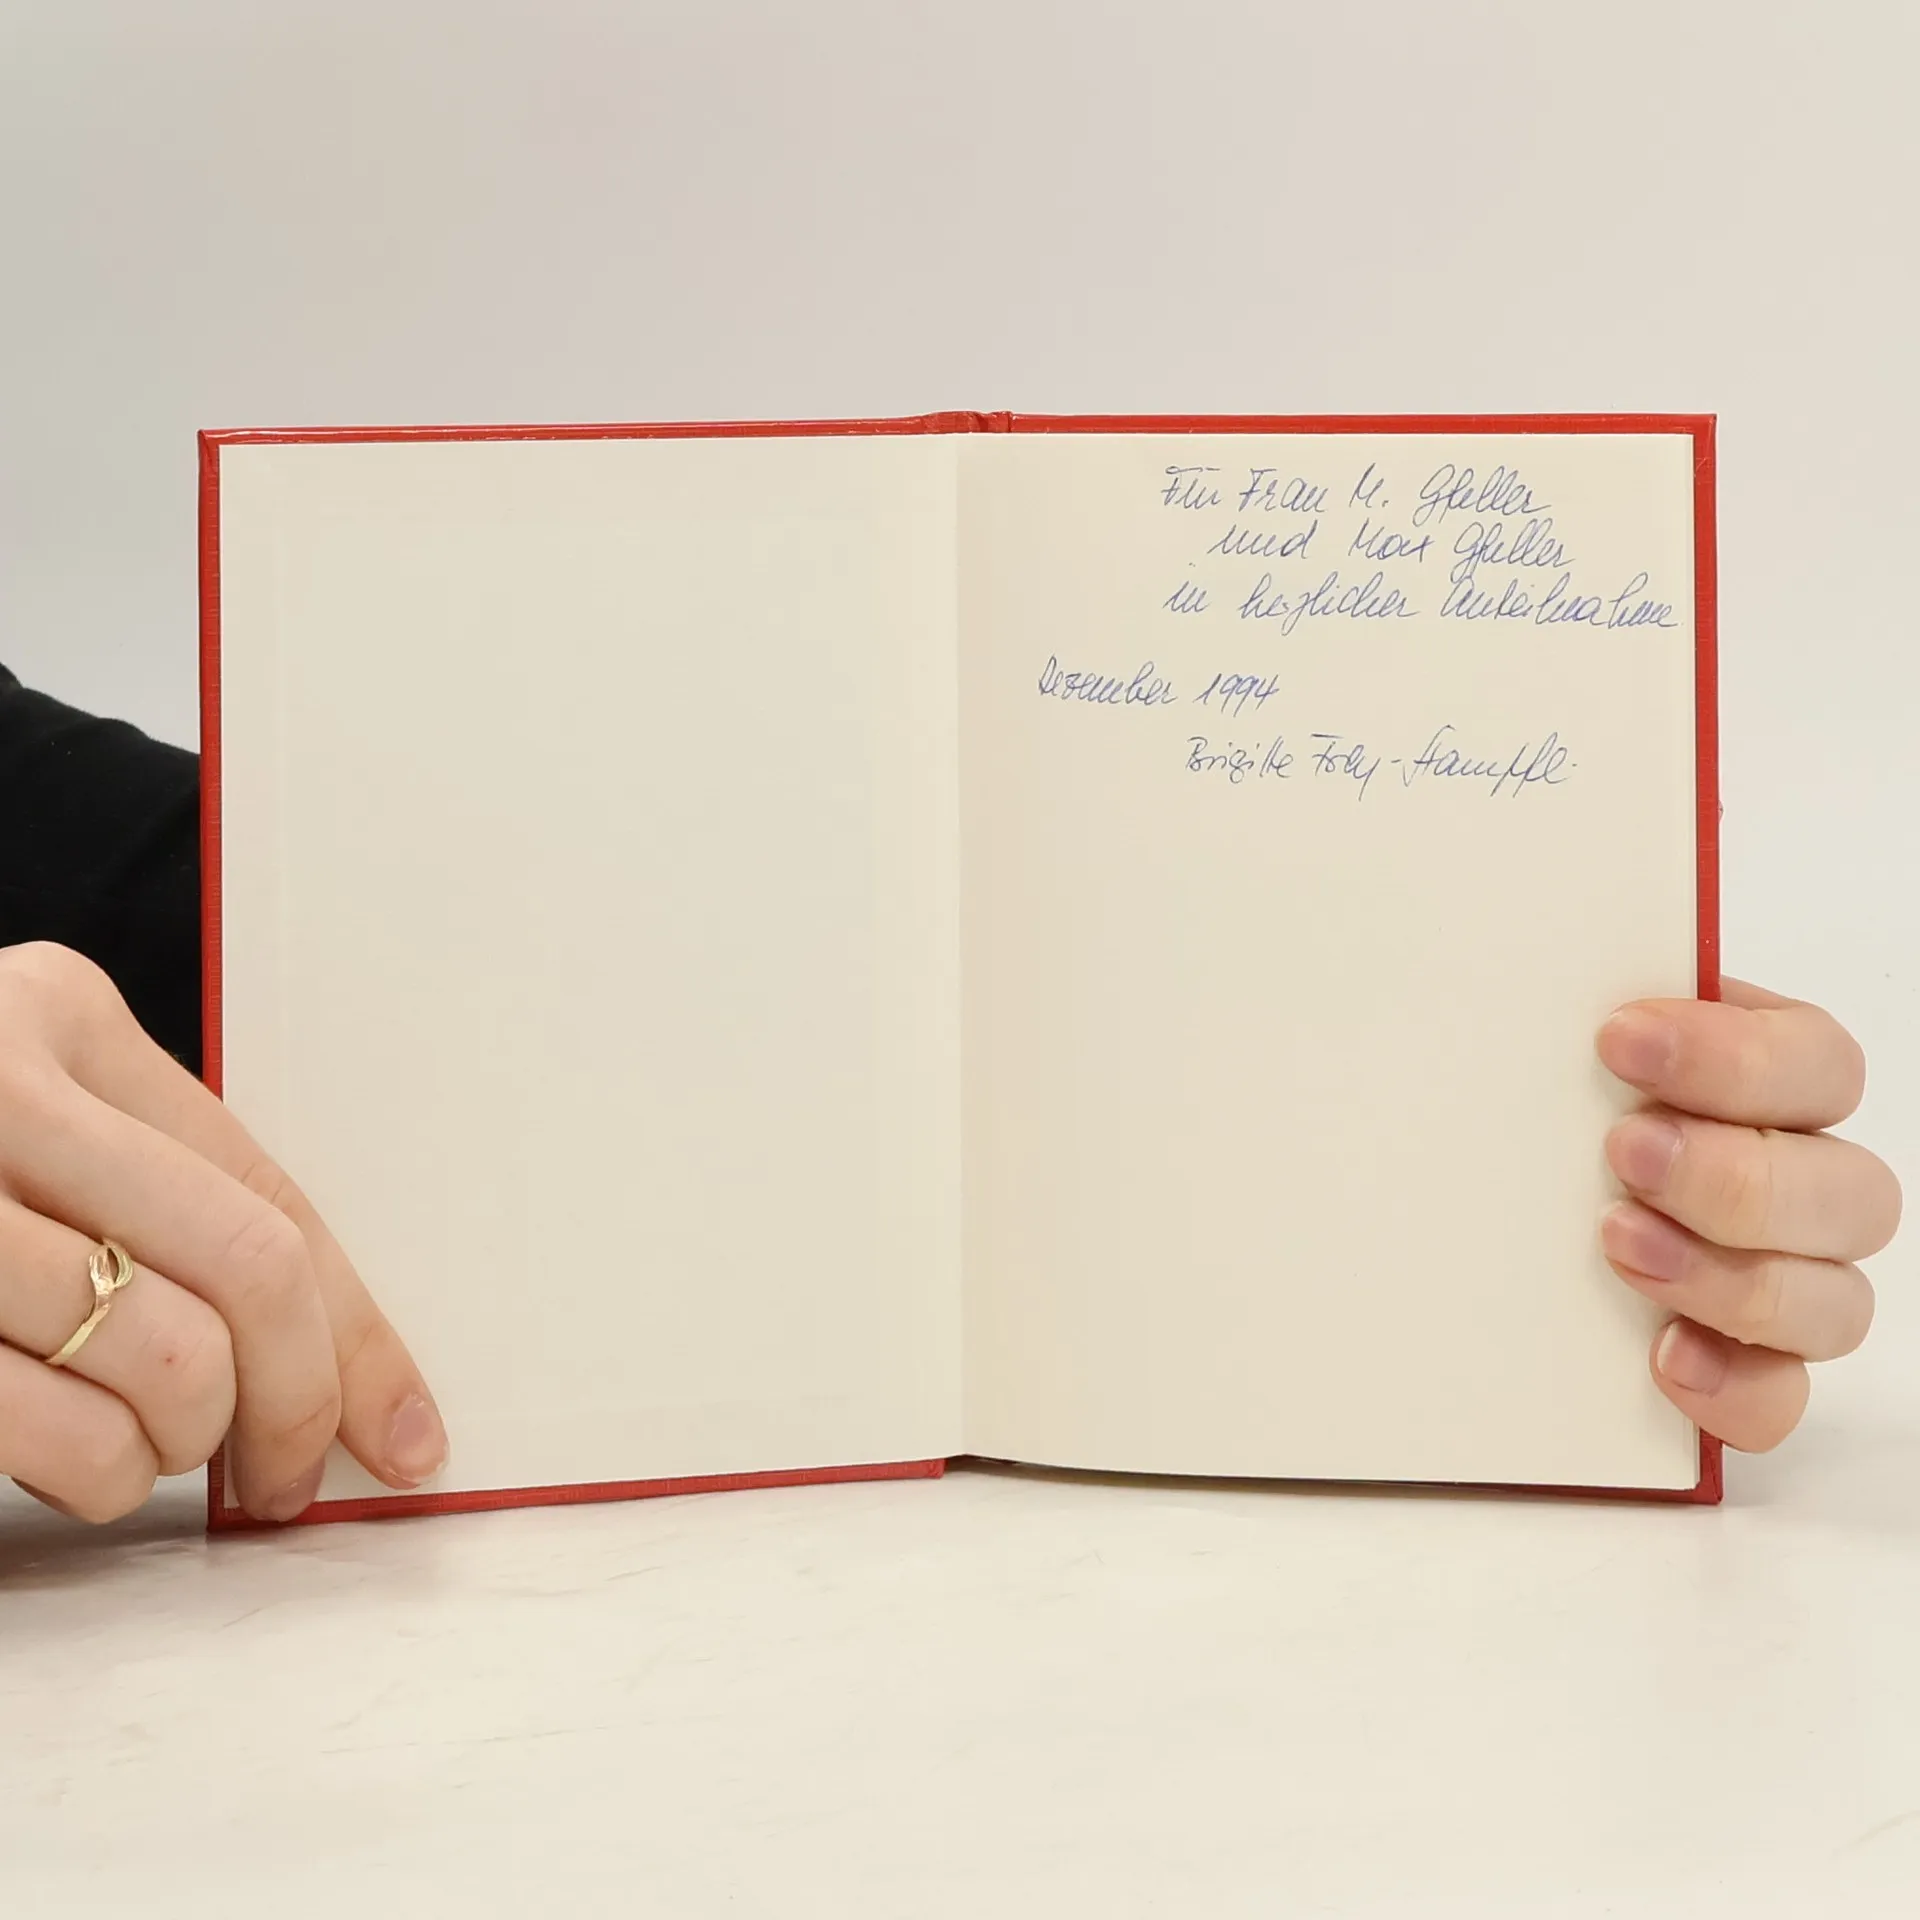 Für Frau M. Gfeller
und Max Gfeller
in herzlicher Anteilnahme.
Dezember 1994
Brigitte Frey-Stampfli